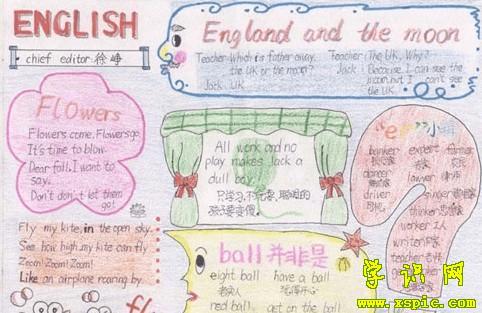 ENGLISH
chief editor 徐峥
England and the moon
Teacher: Which is father away,
the UK or the moon?
Jack: UK
Teacher: The UK, Why?
Jack: Because I can see the
moon, but I can't see
the UK.
Flowers
Flowers come, Flowers go.
It's time to blow.
Dear fall, I want to
say.
Don't don't let them
go!
All work and no
play makes Jack a
dull boy.
只学习,不玩耍,聪明的
孩子变傻.
banker
dancer
driver
司机
expert
专家
lawyer
律师
farmer
农民
singer
thinker 思想家
worker 工人
writer 作家
teacher 老师
Fly my kite, in the open sky.
See how high my kite can fly
Zoom! Zoom! Zoom!
Like an airplane roaring by.
ball 并非是
eight ball
have a ball
red ball
get on the ball
学识网
www.xspic.com